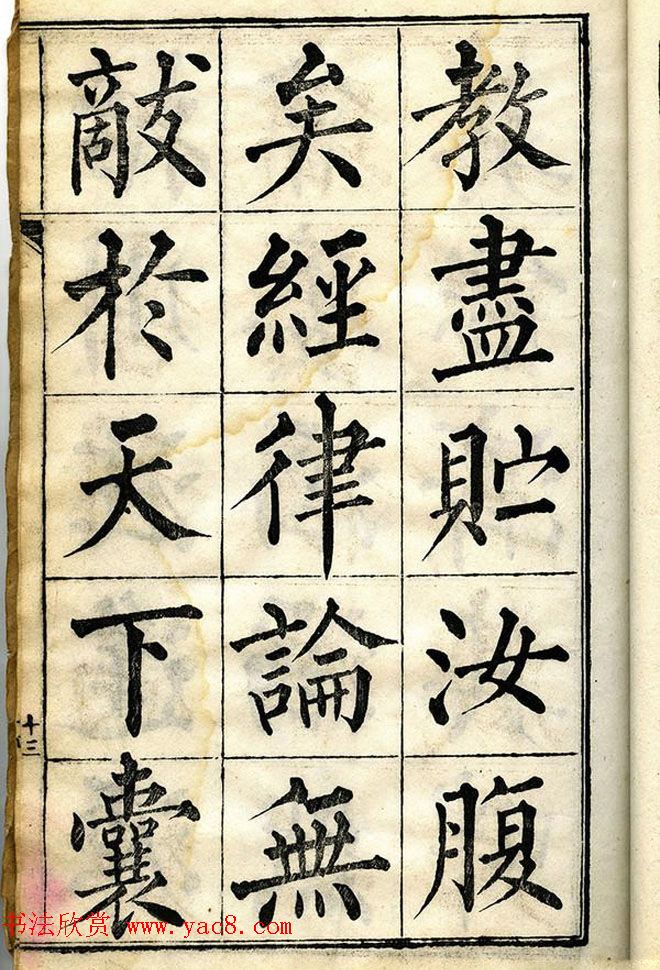 教盡貯汝腹
矣經律論無
敵於天下囊
十三
书法欣赏 www.yac8.com